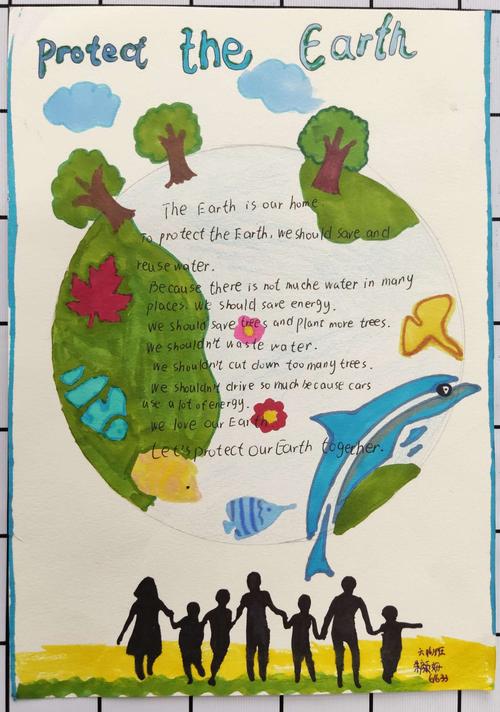 Protect the Earth
The Earth is our home.
To protect the Earth, we should save and
reuse water.
Because there is not muche water in many
places. We should save energy.
We should save trees and plant more trees.
We shouldn't waste water.
We shouldn't cut down too many trees.
We shouldn't drive so much because cars
use a lot of energy.
We love our Earth
Let's protect our Earth together.